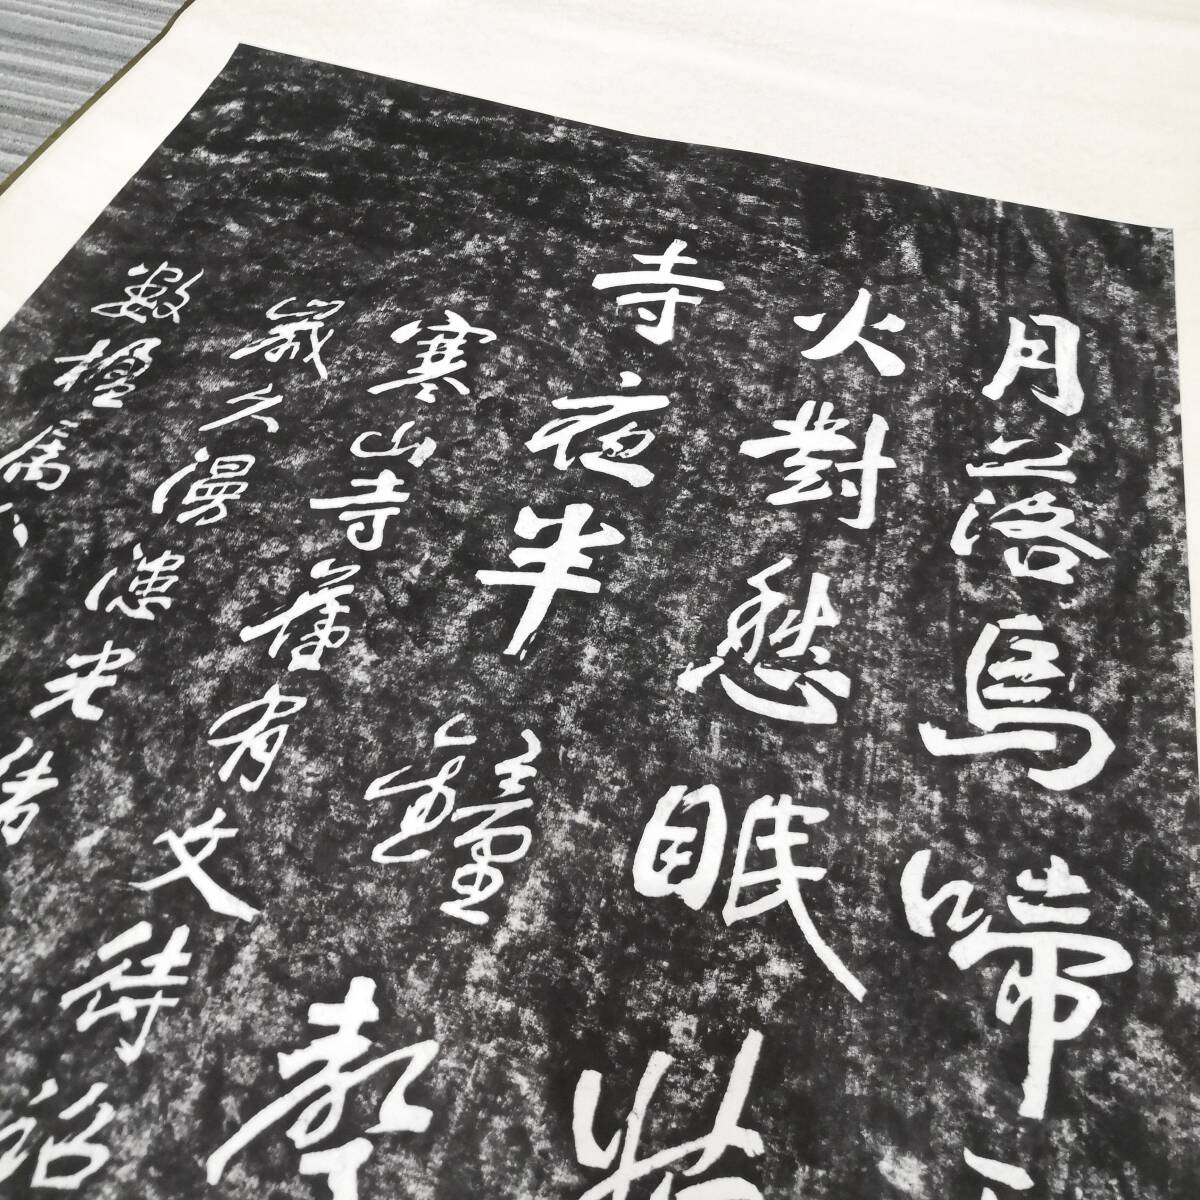 月落烏啼
火對愁眠姑
寺夜半鐘聲
寒山寺舊有文待詔
歲久漫漶光緒
數楹屬